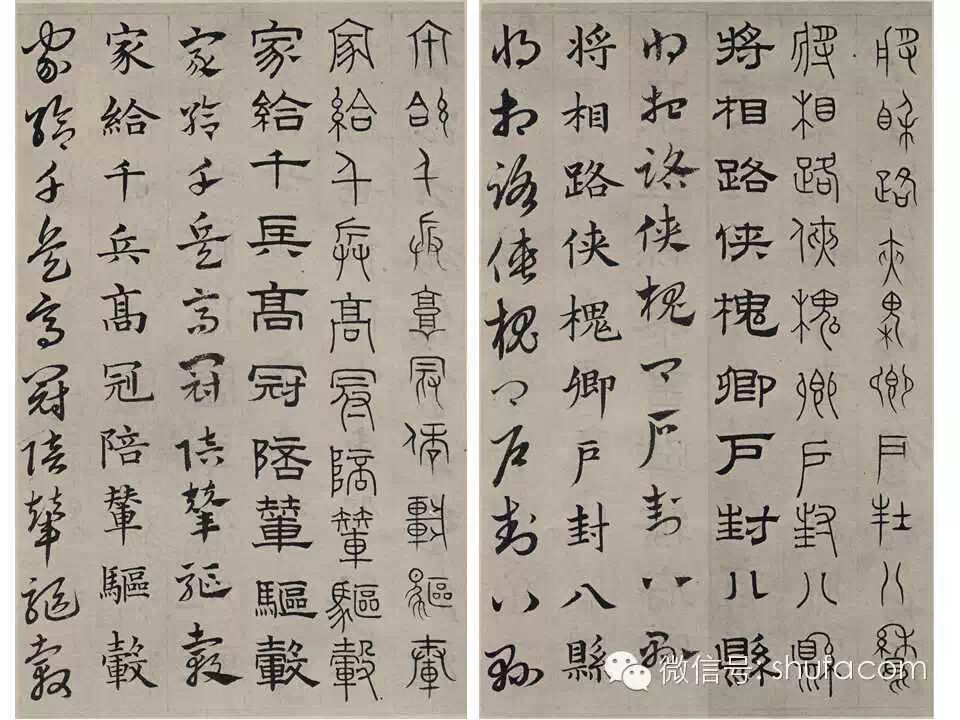 將相路俠槐卿戶封八縣
將相路俠槐卿戶封八縣
將相路侠槐卿戶封八縣
將相路侠槐卿戶封八縣
將相路侠槐卿戶封八縣
將相路侠槐卿戶封八縣
家給千兵高冠陪輦驅轂
家給千兵高冠陪輦驅轂
家給千兵髙冠陪輦驅轂
家給千兵高冠陪輦驅轂
家給千兵髙冠陪輦驅轂
家給千兵高冠陪輦驅轂
微信号: shufacom